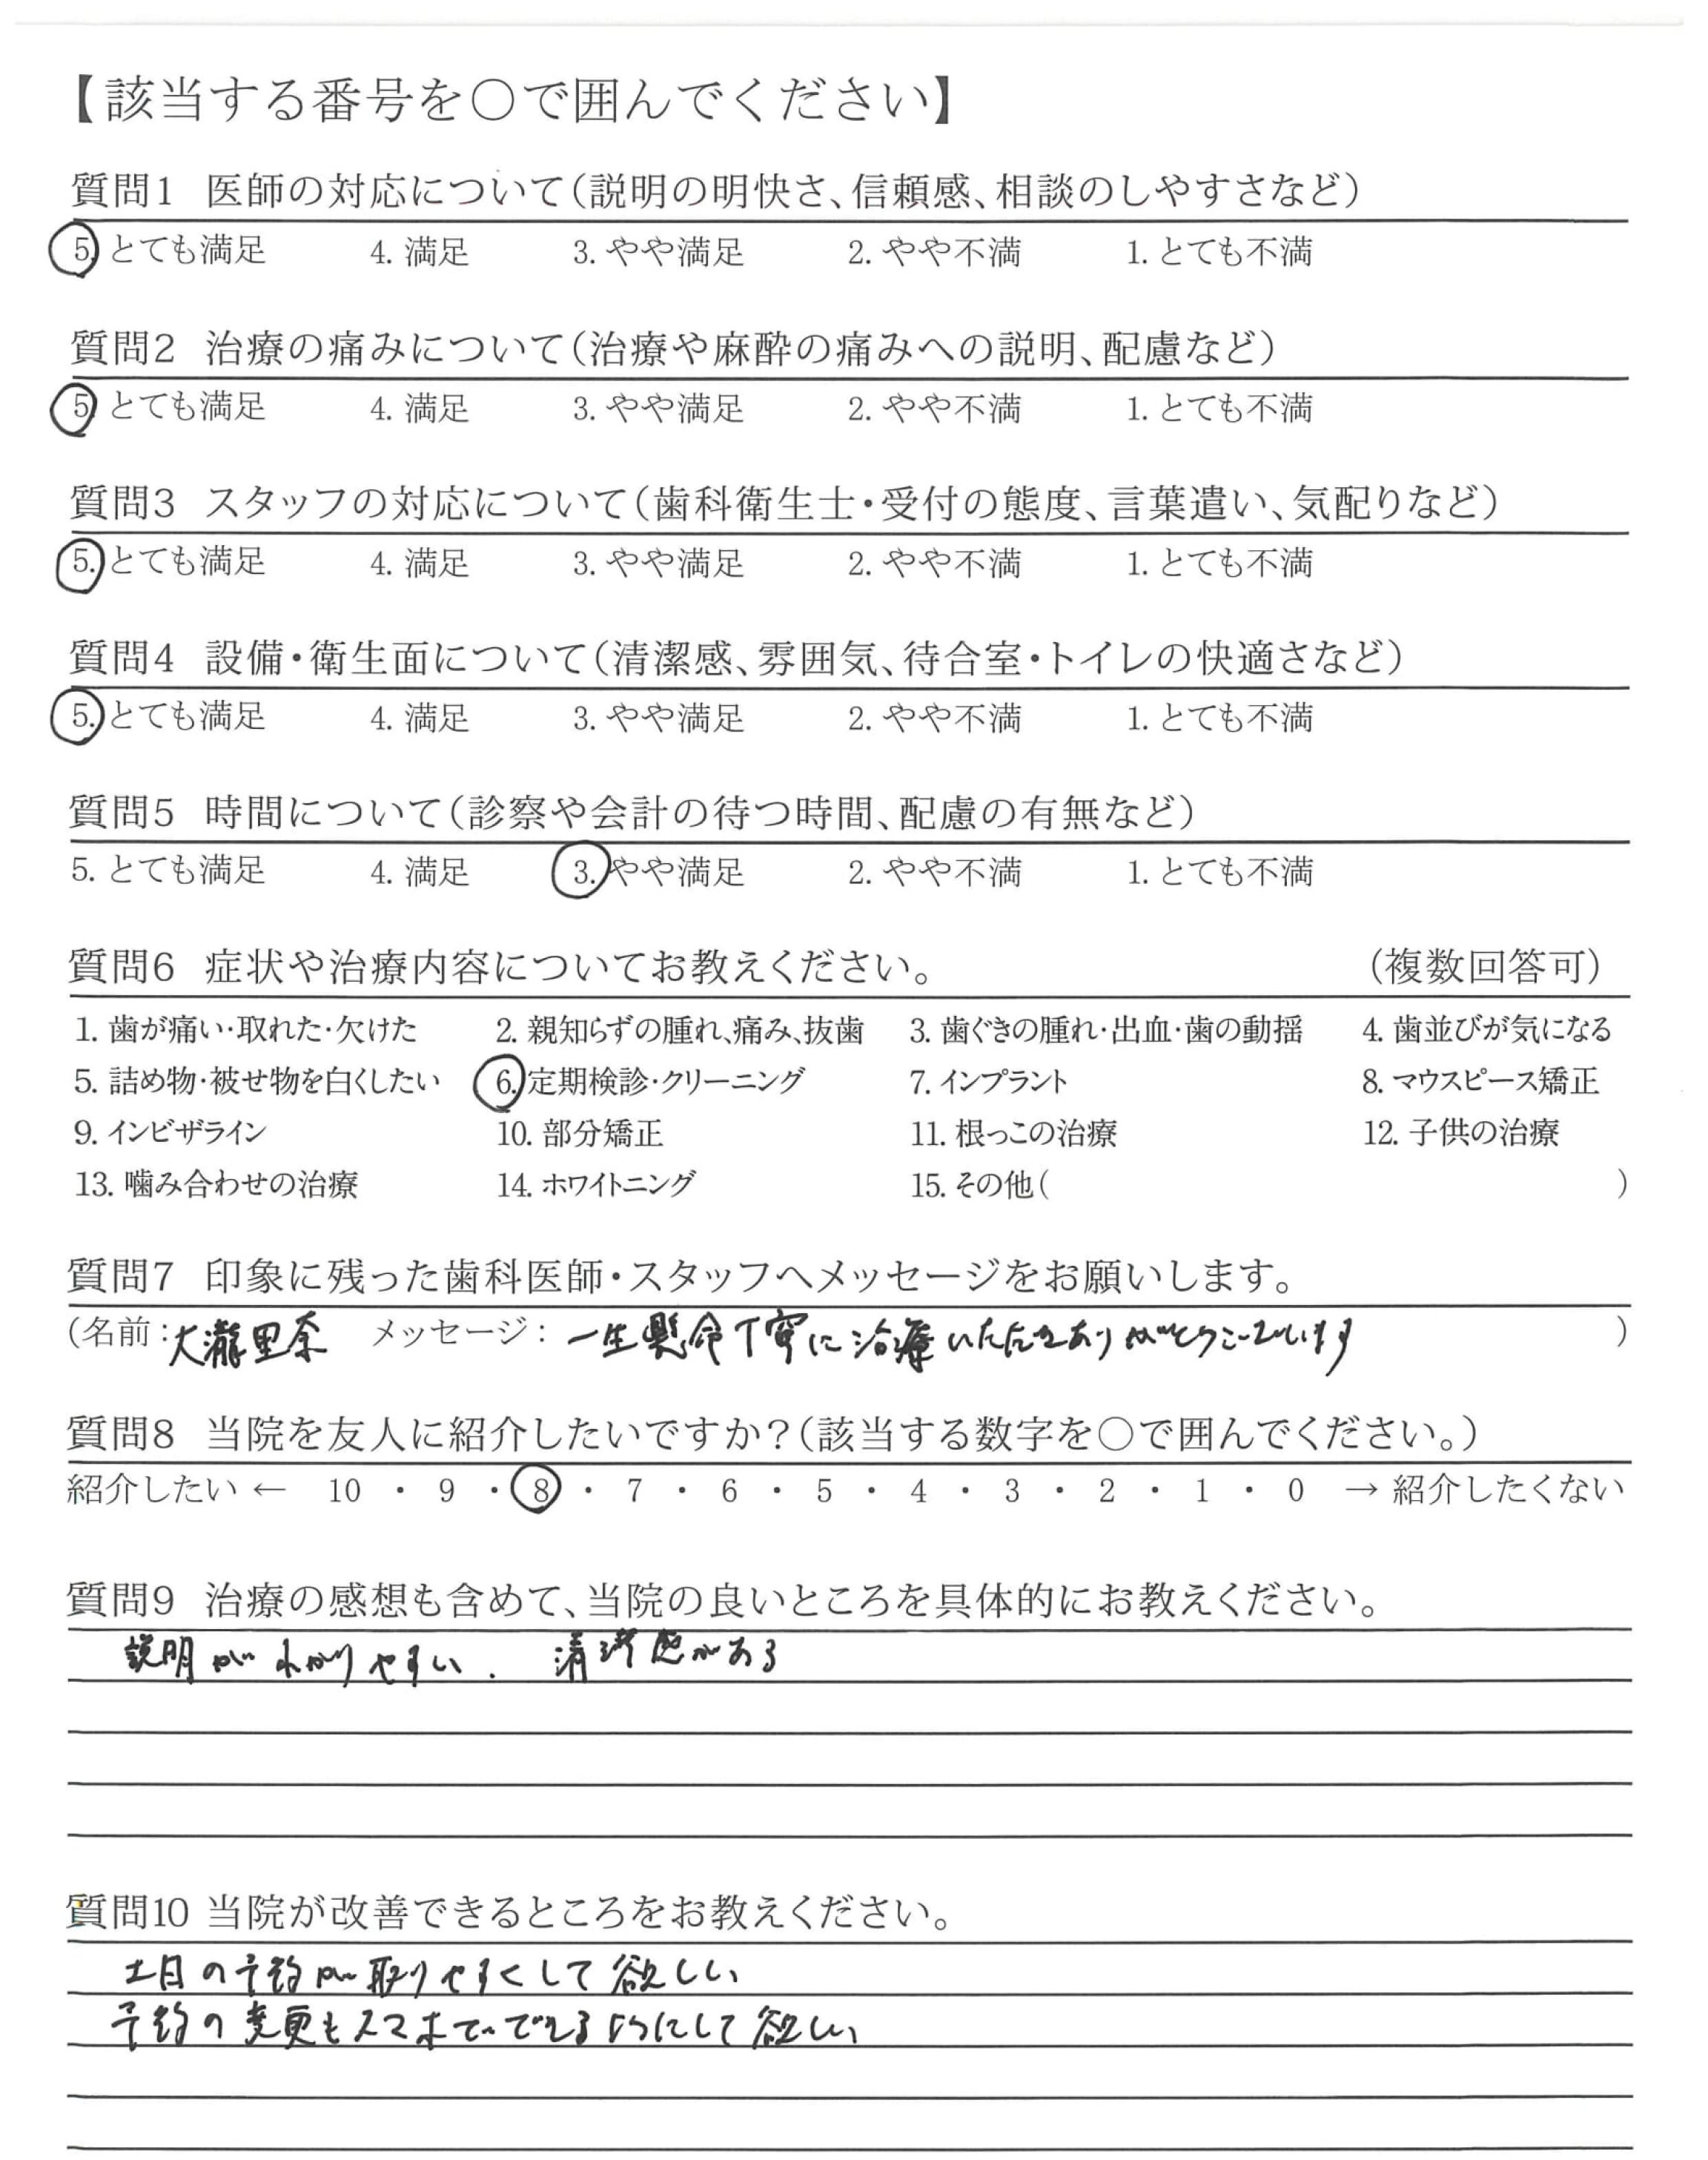 【該当する番号を〇で囲んでください】
質問1 医師の対応について(説明の明快さ、信頼感、相談のしやすさなど)
5. とても満足 4. 満足 3. やや満足 2. やや不満 1. とても不満
質問2 治療の痛みについて(治療や麻酔の痛みへの説明、配慮など)
5. とても満足 4. 満足 3. やや満足 2. やや不満 1. とても不満
質問3 スタッフの対応について(歯科衛生士・受付の態度、言葉遣い、気配りなど)
5. とても満足 4. 満足 3. やや満足 2. やや不満 1. とても不満
質問4 設備・衛生面について(清潔感、雰囲気、待合室・トイレの快適さなど)
5. とても満足 4. 満足 3. やや満足 2. やや不満 1. とても不満
質問5 時間について(診察や会計の待つ時間、配慮の有無など)
5. とても満足 4. 満足 3. やや満足 2. やや不満 1. とても不満
質問6 症状や治療内容についてお教えください。 (複数回答可)
1. 歯が痛い・取れた・欠けた 2. 親知らずの腫れ、痛み、抜歯 3. 歯ぐきの腫れ・出血・歯の動揺 4. 歯並びが気になる
5. 詰め物・被せ物を白くしたい 6. 定期検診・クリーニング 7. インプラント 8. マウスピース矯正
9. インビザライン 10. 部分矯正 11. 根っこの治療 12. 子供の治療
13. 噛み合わせの治療 14. ホワイトニング 15. その他( )
質問7 印象に残った歯科医師・スタッフへメッセージをお願いします。
(名前:大瀧里奈 メッセージ: 一生懸命丁寧に治療いただきありがとうございます )
質問8 当院を友人に紹介したいですか?(該当する数字を〇で囲んでください。)
紹介したい ← 10 ・ 9 ・ 8 ・ 7 ・ 6 ・ 5 ・ 4 ・ 3 ・ 2 ・ 1 ・ 0 → 紹介したくない
質問9 治療の感想も含めて、当院の良いところを具体的にお教えください。
説明がわかりやすい. 清潔感がある
質問10 当院が改善できるところをお教えください。
土日の予約が取りやすくして欲しい
予約の変更もスマホでできるようにして欲しい